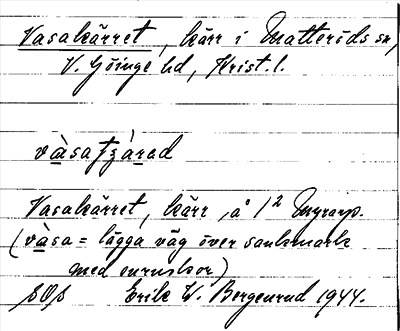 Vasakärret, kärr i Matteröds sn,
V. Göinge hd, Krist. l.
vàsatʒàrad
Vasakärret, kärr, å 1² Myrarp.
(vàsa = lägga väg över sankmark
med enruskor)
SOS Erik W. Bergenrud 1944.